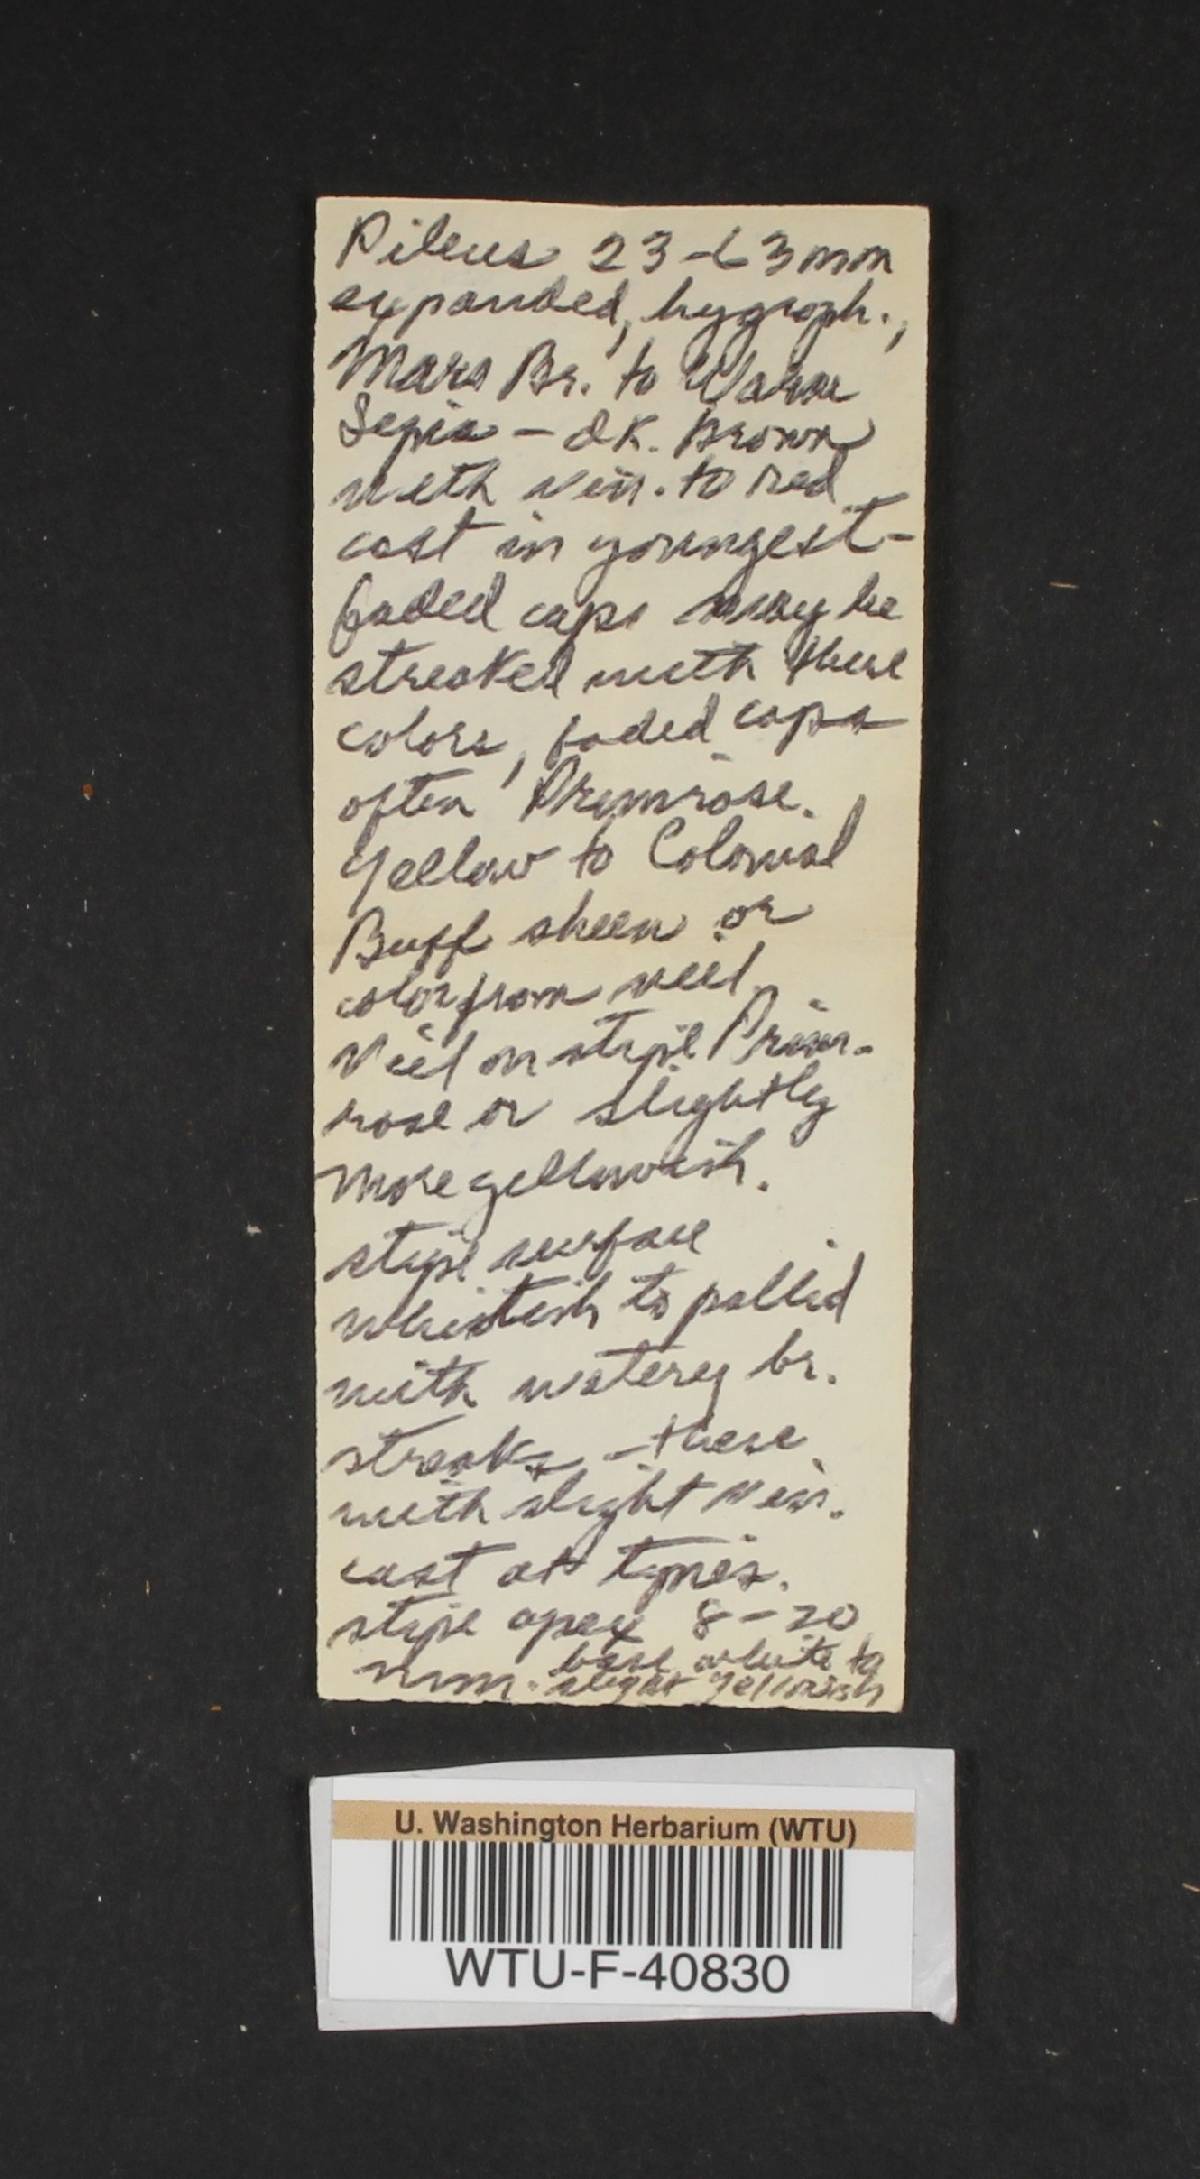 Pileus 23-63mm
expanded, hygroph.,
Mars Br. to Warm
Sepia - dk. Brown
with vin. to red
cast in youngest-
faded caps may be
streaked with these
colors, faded caps
often Primrose.
Yellow to Colonial
Buff sheen or
color from veil.
Veil on stipe Prim-
rose or slightly
more yellowish.
stipe surface
whitish to pallid
with watery br.
streaks - these
with slight vin.
cast at times.
stipe apex 8-20
mm. base white to
slight yellowish
U. Washington Herbarium (WTU)
WTU-F-40830